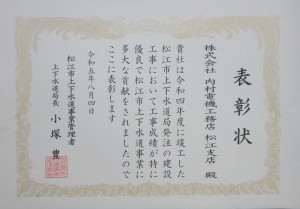 表彰状
株式会社 内村電機工務店 松江支店 殿
貴社は令和四年度に竣工した
松江市上下水道局発注の建設
工事において工事成績が特に
優良で松江市上下水道事業に
多大な貢献をされましたので
ここに表彰します
令和五年八月四日
松江市上下水道事業管理者
上下水道局長 小塚 豊